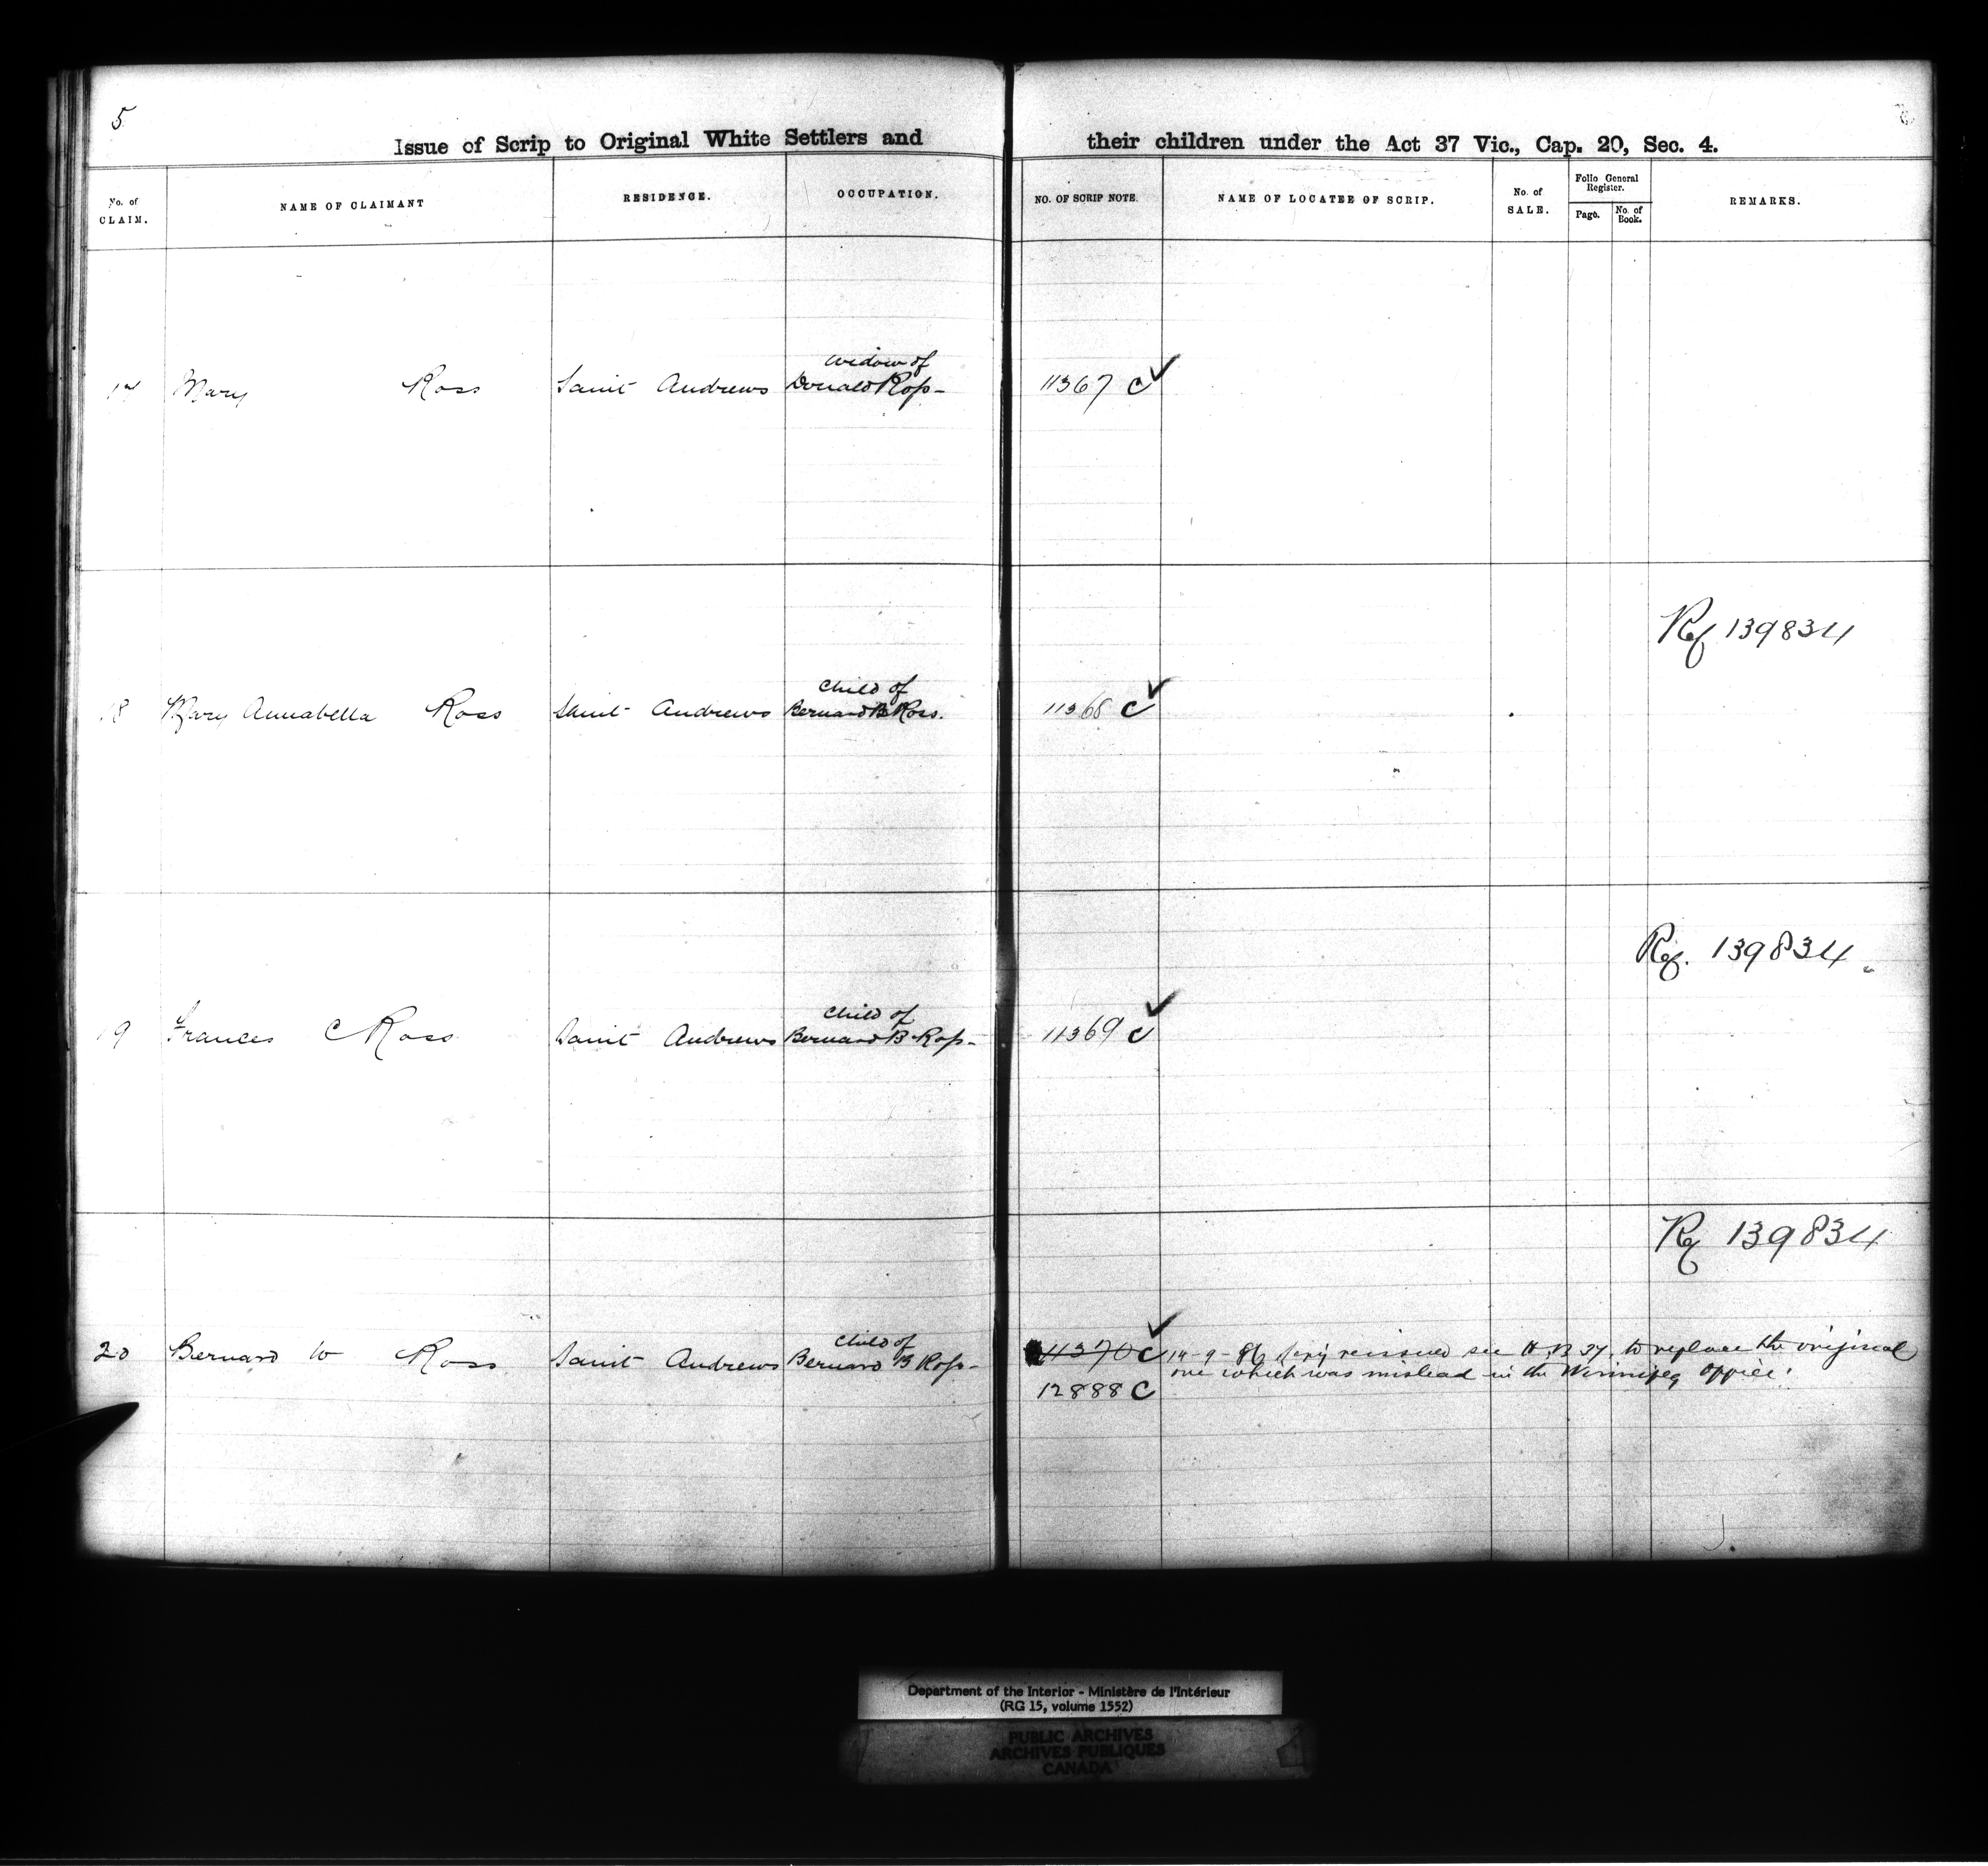 5
Issue of Scrip to Original White Settlers and their children under the Act 37 Vic., Cap. 20, Sec. 4.
No. of CLAIM. NAME OF CLAIMANT RESIDENCE. OCCUPATION. NO. OF SCRIP NOTE. NAME OF LOCATEE OF SCRIP. No. of SALE. Folio General Register. Page. No. of Book. REMARKS.
widow of
17 Mary Ross Saint Andrews Donald Ross - 11367 C ✓
Ref 139834
Child of
18 Mary Annabella Ross Saint Andrews Bernard B Ross. 11368 C ✓
Ref. 139834
Child of
19 Frances C Ross Saint Andrews Bernard B Ross - 11369 C ✓
Ref 139834
Child of
20 Bernard W Ross Saint Andrews Bernard B Ross - 11370 C ✓ 14-9-86 Scrip reissued see H.B 37. to replace the original
12888 C one which was mislead in the Winnipeg office.
Department of the Interior - Ministère de l'Intérieur
(RG 15, volume 1552)
PUBLIC ARCHIVES
ARCHIVES PUBLIQUES
CANADA